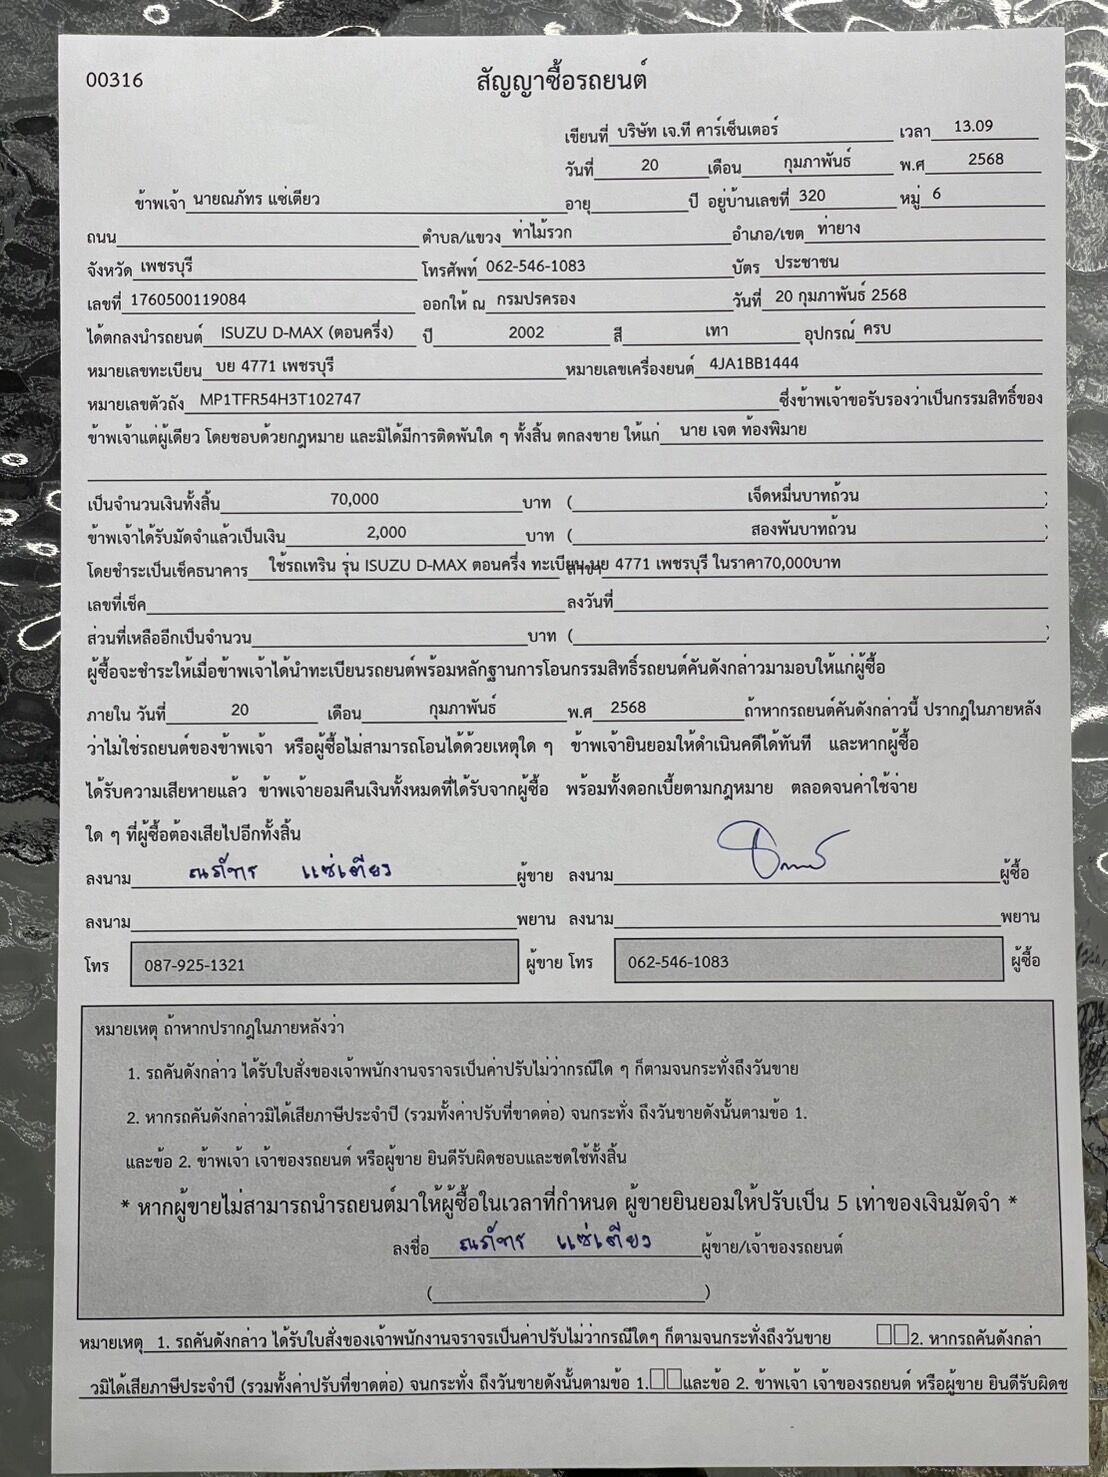 00316
สัญญาซื้อรถยนต์
เขียนที่ บริษัท เจ.ที คาร์เซ็นเตอร์ เวลา 13.09
วันที่ 20 เดือน กุมภาพันธ์ พ.ศ 2568
ข้าพเจ้า นายณภัทร แซ่เตียว อายุ ปี อยู่บ้านเลขที่ 320 หมู่ 6
ถนน ตำบล/แขวง ท่าไม้รวก อำเภอ/เขต ท่ายาง
จังหวัด เพชรบุรี โทรศัพท์ 062-546-1083 บัตร ประชาชน
เลขที่ 1760500119084 ออกให้ ณ กรมปรครอง วันที่ 20 กุมภาพันธ์ 2568
ได้ตกลงนำรถยนต์ ISUZU D-MAX (ตอนครึ่ง) ปี 2002 สี เทา อุปกรณ์ ครบ
หมายเลขทะเบียน บย 4771 เพชรบุรี หมายเลขเครื่องยนต์ 4JA1BB1444
หมายเลขตัวถัง MP1TFR54H3T102747 ซึ่งข้าพเจ้าขอรับรองว่าเป็นกรรมสิทธิ์ของ
ข้าพเจ้าแต่ผู้เดียว โดยชอบด้วยกฎหมาย และมิได้มีการติดพันใด ๆ ทั้งสิ้น ตกลงขาย ให้แก่ นาย เจต ท้องพิมาย
เป็นจำนวนเงินทั้งสิ้น 70,000 บาท ( เจ็ดหมื่นบาทถ้วน )
ข้าพเจ้าได้รับมัดจำแล้วเป็นเงิน 2,000 บาท ( สองพันบาทถ้วน )
โดยชำระเป็นเช็คธนาคาร ใช้รถเทริน รุ่น ISUZU D-MAX ตอนครึ่ง ทะเบียน บย 4771 เพชรบุรี ในราคา70,000บาท สาขา
เลขที่เช็ค ลงวันที่
ส่วนที่เหลืออีกเป็นจำนวน บาท ( )
ผู้ซื้อจะชำระให้เมื่อข้าพเจ้าได้นำทะเบียนรถยนต์พร้อมหลักฐานการโอนกรรมสิทธิ์รถยนต์คันดังกล่าวมามอบให้แก่ผู้ซื้อ
ภายใน วันที่ 20 เดือน กุมภาพันธ์ พ.ศ 2568 ถ้าหากรถยนต์คันดังกล่าวนี้ ปรากฏในภายหลัง
ว่าไม่ใช่รถยนต์ของข้าพเจ้า หรือผู้ซื้อไม่สามารถโอนได้ด้วยเหตุใด ๆ ข้าพเจ้ายินยอมให้ดำเนินคดีได้ทันที และหากผู้ซื้อ
ได้รับความเสียหายแล้ว ข้าพเจ้ายอมคืนเงินทั้งหมดที่ได้รับจากผู้ซื้อ พร้อมทั้งดอกเบี้ยตามกฎหมาย ตลอดจนค่าใช้จ่าย
ใด ๆ ที่ผู้ซื้อต้องเสียไปอีกทั้งสิ้น
ลงนาม ณภัทร แซ่เตียว ผู้ขาย ลงนาม ผู้ซื้อ
ลงนาม พยาน ลงนาม พยาน
โทร 087-925-1321 ผู้ขาย โทร 062-546-1083 ผู้ซื้อ
หมายเหตุ ถ้าหากปรากฏในภายหลังว่า
1. รถคันดังกล่าว ได้รับใบสั่งของเจ้าพนักงานจราจรเป็นค่าปรับไม่ว่ากรณีใด ๆ ก็ตามจนกระทั่งถึงวันขาย
2. หากรถคันดังกล่าวมิได้เสียภาษีประจำปี (รวมทั้งค่าปรับที่ขาดต่อ) จนกระทั่ง ถึงวันขายดังนั้นตามข้อ 1.
และข้อ 2. ข้าพเจ้า เจ้าของรถยนต์ หรือผู้ขาย ยินดีรับผิดชอบและชดใช้ทั้งสิ้น
* หากผู้ขายไม่สามารถนำรถยนต์มาให้ผู้ซื้อในเวลาที่กำหนด ผู้ขายยินยอมให้ปรับเป็น 5 เท่าของเงินมัดจำ *
ลงชื่อ ณภัทร แซ่เตียว ผู้ขาย/เจ้าของรถยนต์
( )
หมายเหตุ 1. รถคันดังกล่าว ได้รับใบสั่งของเจ้าพนักงานจราจรเป็นค่าปรับไม่ว่ากรณีใดๆ ก็ตามจนกระทั่งถึงวันขาย □□2. หากรถคันดังกล่า
วมิได้เสียภาษีประจำปี (รวมทั้งค่าปรับที่ขาดต่อ) จนกระทั่ง ถึงวันขายดังนั้นตามข้อ 1.□□และข้อ 2. ข้าพเจ้า เจ้าของรถยนต์ หรือผู้ขาย ยินดีรับผิดช